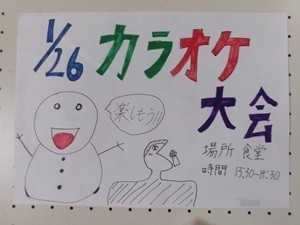 1/26 カラオケ
大会
楽しもう!!
場所 食堂
時間 13:30~14:30